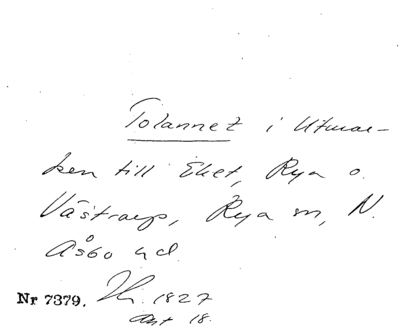 Tolannet i Utmar-
ken till Eket, Rya o.
Västraup, Rya sn, N.
Åsbo hd
Nr 7379. 1827
Art 18.